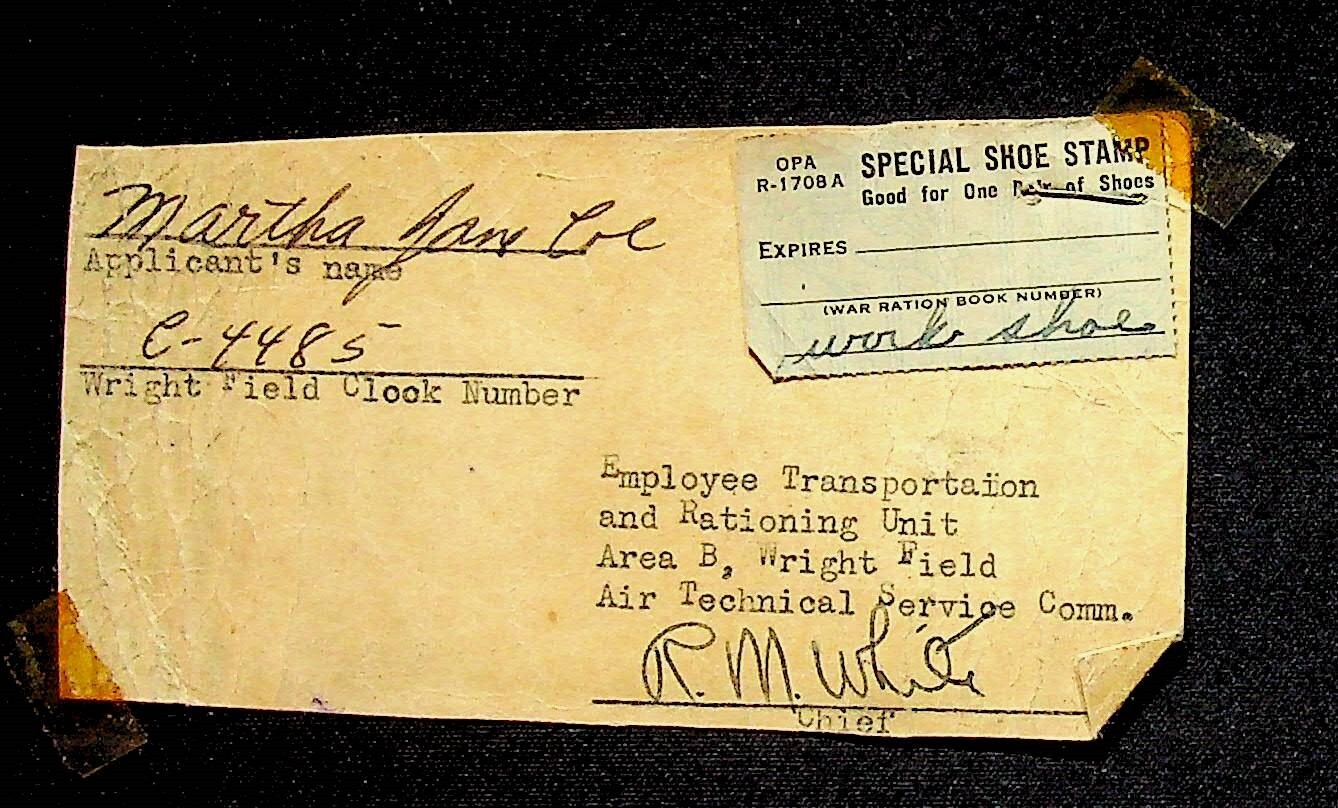 Martha Jane Coe
Applicant's name
C-4485
Wright Field Clock Number
OPA
R-1708 A
SPECIAL SHOE STAMP
Good for One Pair of Shoes
EXPIRES
(WAR RATION BOOK NUMBER)
work shoe
Employee Transportaion
and Rationing Unit
Area B, Wright Field
Air Technical Service Comm.
R. M. White
Chief